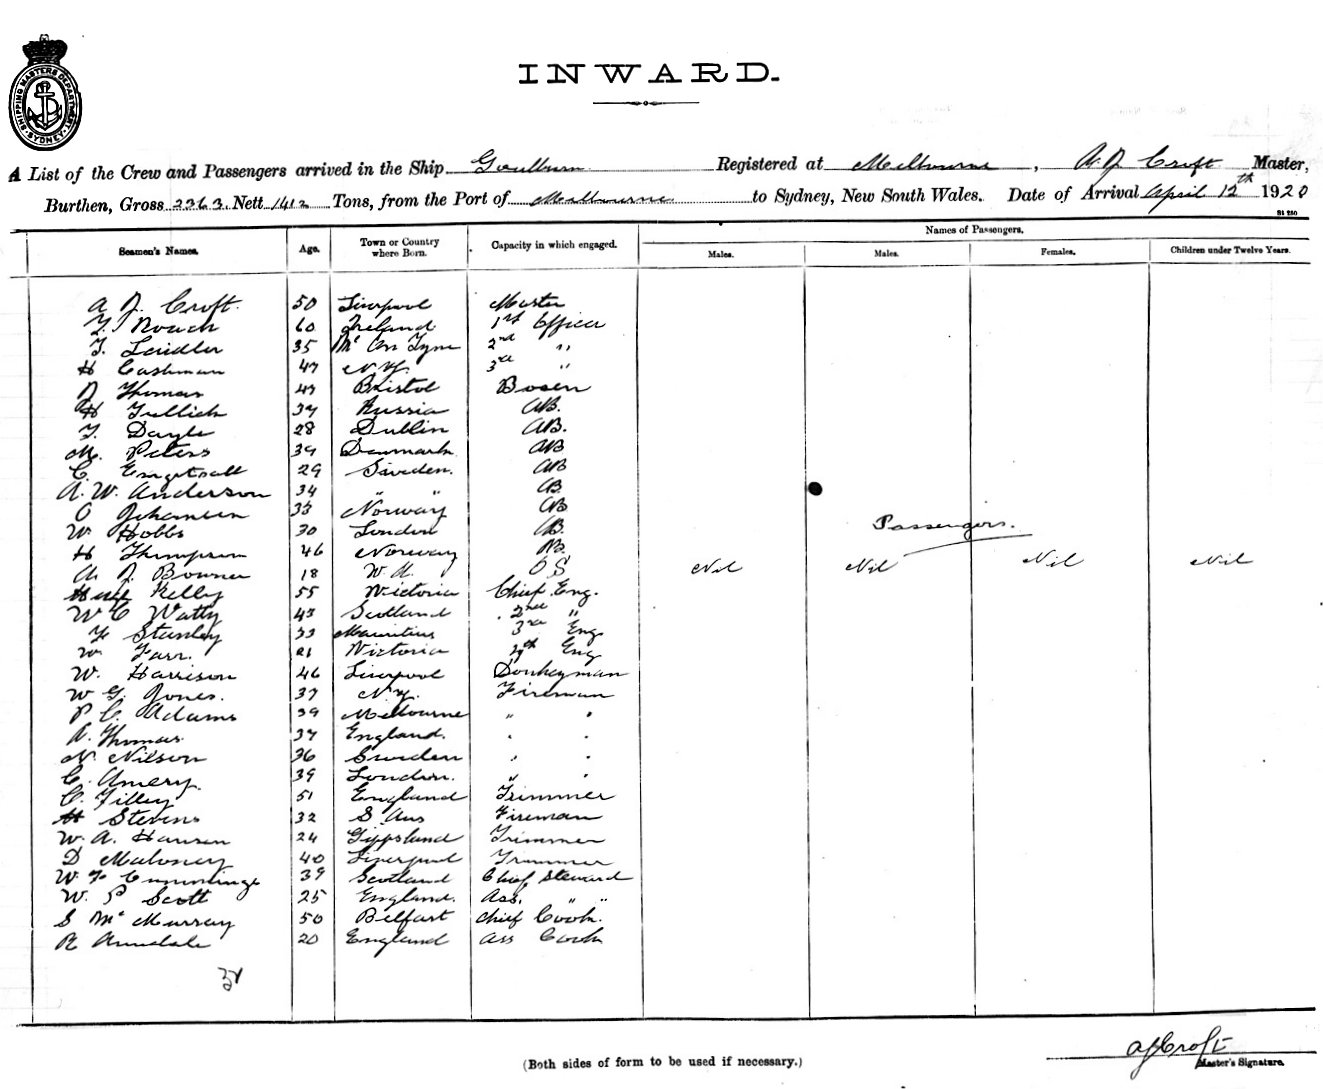 SHIPPING MASTERS DEPARTMENT SYDNEY
INWARD.
A List of the Crew and Passengers arrived in the Ship Goulburn Registered at Melbourne, A. J. Croft Master,
Burthen, Gross 2363 Nett 1412 Tons, from the Port of Melbourne to Sydney, New South Wales. Date of Arrival April 12th 1920
Names of Passengers.
Seamen's Names. Age. Town or Country where Born. Capacity in which engaged. Males. Males. Females. Children under Twelve Years.
A J. Croft. 50 Liverpool Master
Roach 60 Ireland 1st Officer
35 2nd "
H Cashman 47 N.Z. 3rd "
Thomas 47 Bristol Bosen
H 39 Russia AB.
Doyle 28 Dublin AB.
M. Peters 39 Denmark AB
C. 29 Sweden. AB
A. W. Anderson 34 " " AB.
O Johansen 33 Norway AB
W. Hobbs 30 London AB.
Passengers.
H Thompson 46 Norway AB.
18 W. A. OS
Nil Nil Nil Nil
Kelly 55 Victoria Chief Eng.
W C Watty 43 Scotland 2nd "
Stanley 33 Mauritius 3rd Eng
W. Farr. 21 Victoria 4th Eng
W. Harrison 46 Liverpool Donkeyman
W G. Jones. 37 N.Z. Fireman
P C. Adams 39 Melbourne " "
A. Thomas 37 England. " "
N. Nilson 36 Sweden " "
C. Amery. 39 London. " "
C. Tilley 51 England Trimmer
H Stevens 32 S Aus Fireman
W. A. Hansen 24 Gippsland Trimmer
D Maloney 40 Liverpool Trimmer
W. F Cummings 39 Scotland Chief Steward
W. P Scott 25 England. Ass. " "
S McMurray 50 Belfast Chief Cook.
R Annadale 20 England Ass Cook
32
A J Croft
Master's Signature.
(Both sides of form to be used if necessary.)